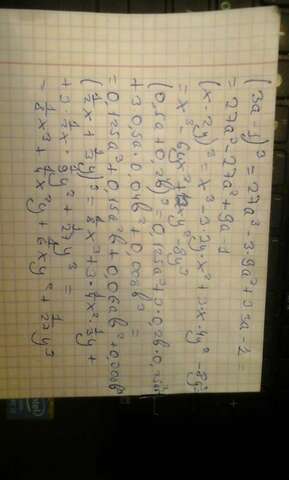 (3a-1)³ = 27a³ - 3·9a² + 3·3a - 1 =
= 27a³ - 27a² + 9a - 1
(x - 2y)³ = x³ - 3·2y·x² + 3·x·4y² - 8y³
= x³ - 6yx² + 12xy² - 8y³
(0,5a + 0,2b)³ = 0,125a³ + 3·0,2b·0,25a²
+ 3·0,5a·0,04b² + 0,008b³ =
= 0,125a³ + 0,15a²b + 0,06ab² + 0,008b³
(½x + ⅓y)³ = ⅛x³ + 3·¼x²·⅓y +
+ 3·½x·⅑y² + 1/27 y³ =
= ⅛x³ + ¼x²y + ⅙xy² + 1/27 y³